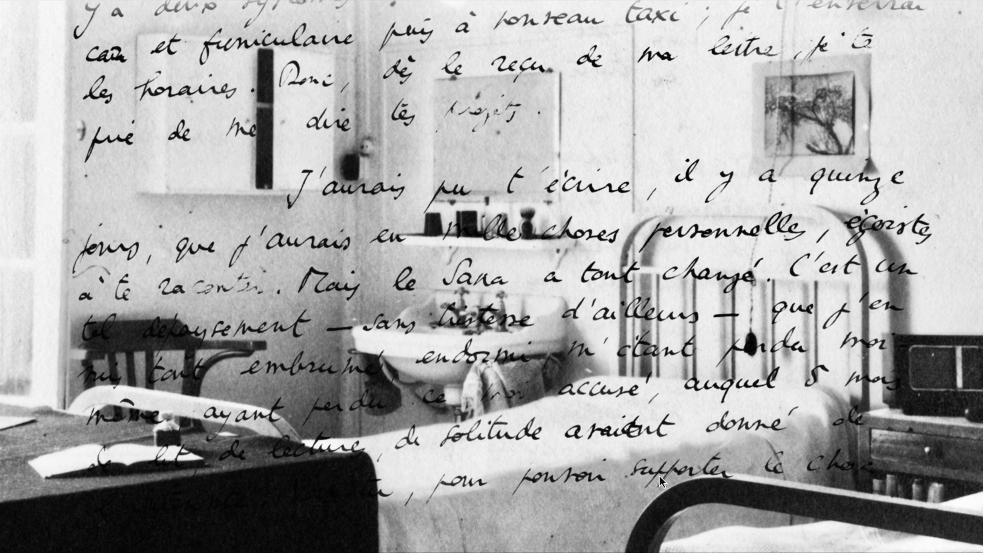 y a deux systèmes
car et funiculaire puis à nouveau taxi ; je t'enverrai
les horaires. Donc, dès le reçu de ma lettre, je te
prie de me dire tes projets.
J'aurais pu t'écrire, il y a quinze
jours, que j'aurais eu mille choses personnelles, égoïstes
à te raconter. Mais le Sana a tout changé. C'est un
tel dépaysement – sans tristesse d'ailleurs – que j'en
suis tout embrumé, endormi m'étant perdu moi-
même ayant perdu ce moi accusé, auquel 5 mois
de lit de lecture, de solitude avaient donné de
, pour pouvoir supporter le choc